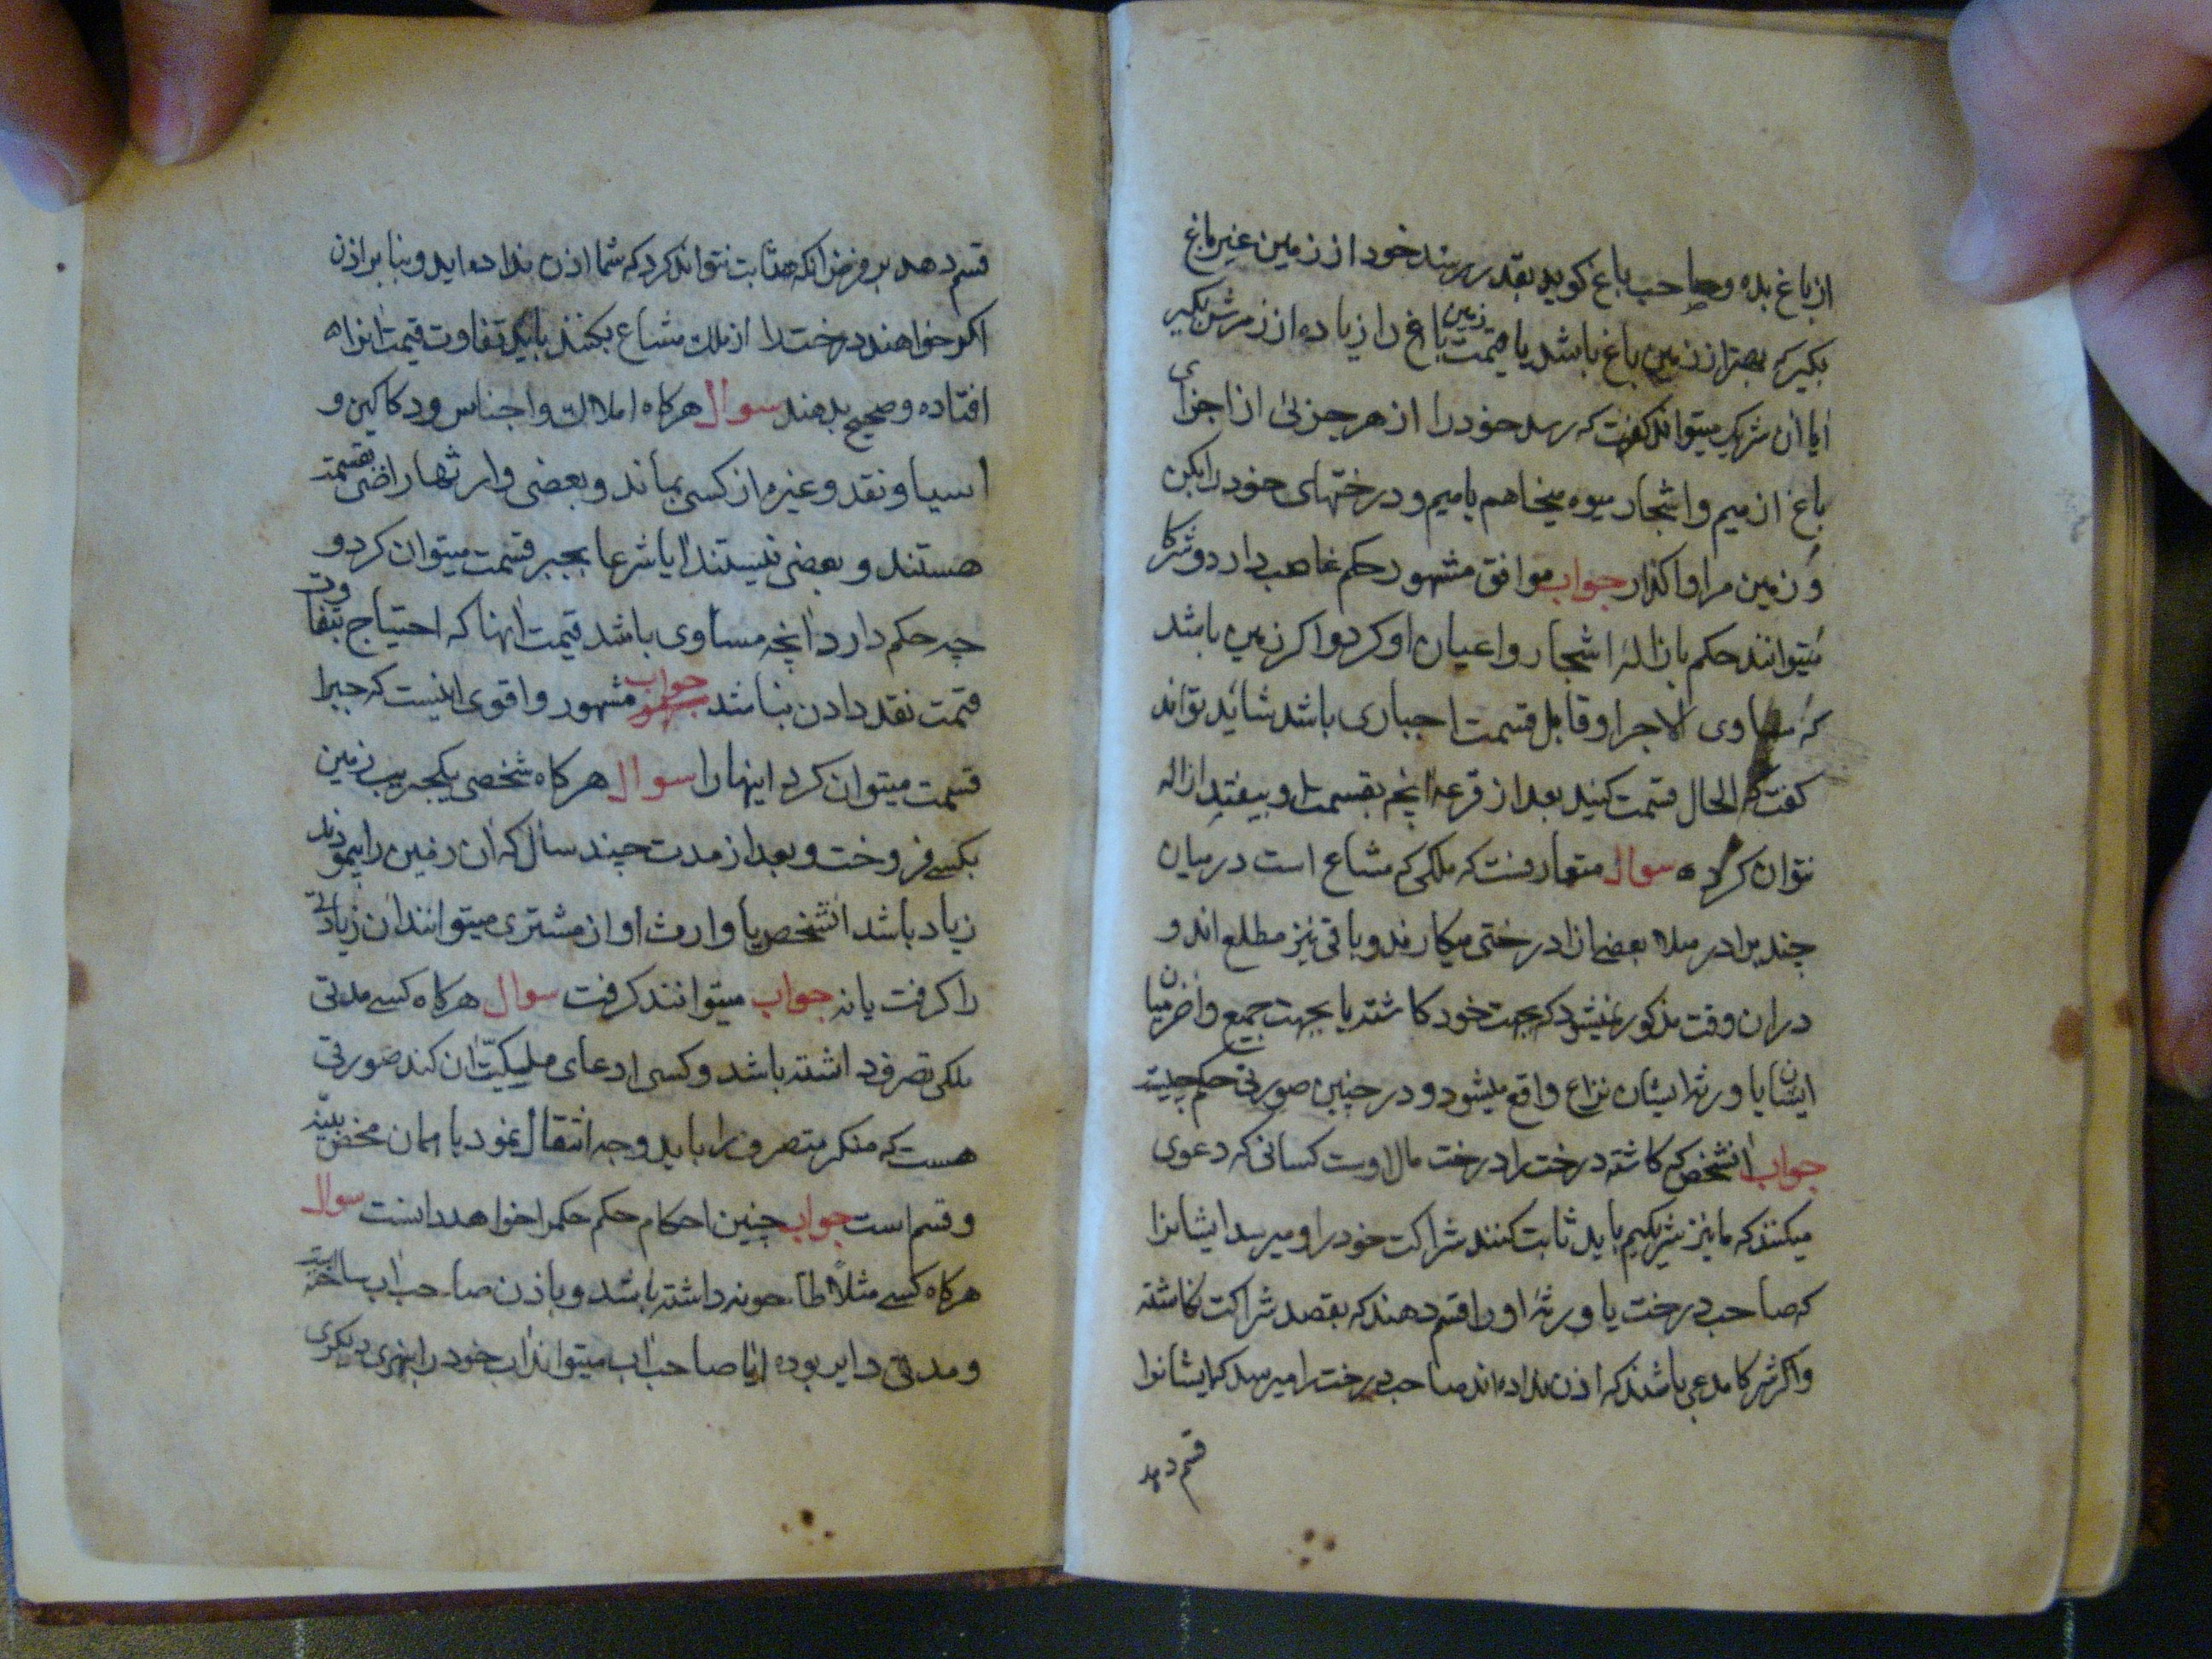 از باغ بده و صاحب باغ کوید بقدر رسد خود از زمین غیر باغ
بکیر که بهتر از زمین باغ باشد یا قیمت زمین باغ را زیاده از زمرش بکیر
ایا ان شریک میتواند کفت که رسد خود را از هر جزئی از اجزای
باغ از میم و اشجار میوه میخاهم یا میم و درختهای خود را بکن
و زمین مرا واکذار جواب موافق مشهور حکم غاصب دارد و شرکا
میتوانند حکم بازالۀ اشجار و اعیان او کرد و اکر زمین باشد
که مساوی الاجزا و قابل قسمت اجباری باشد شاید تواند
کفت که الحال قسمت کنید بعد از قرعه انچه بقسمت او بیفتد ازاله
توان کرد سوال متعارفست که ملکی که مشاع است در میان
چند برادر مثلا بعضی ازا درختی میکارند و باقی نیز مطلع اند و
در ان وقت مذکور نمیشود که بجهت خود کاشته یا بجهت جمیع و اخر میان
ایشان یا ورثۀ ایشان نزاع واقع میشود و در چنین صورتی حکم چیست
جواب انشخص که کاشته درخت را درخت مال اوست کسانی که دعوی
میکنند که ما نیز شریکیم باید ثابت کنند شراکت خود را و میرسد ایشانرا
که صاحب درخت یا ورثۀ او را قسم دهند که بقصد شراکت نکاشته
و اکر شرکا مدعی باشند که اذن نداده اند صاحب درخت را میرسد که ایشانرا
قسم دهد
قسم دهد بر فرض انکه ثابت نتواند کرد که شما اذن نداده اید و بنا بر اذن
اکر خواهند درخت را از ملک مشاع بکنند باید تفاوت قیمت انرا
افتاده و صحیح بدهند سوال هرکاه املاک و اجناس و دکاکین و
اسیا و نقد و غیره از کسی بماند و بعضی وارثها راضی بقسمت
هستند و بعضی نیستند ایا شرعا بجبر قسمت میتوان کرد و
چه حکم دارد انچه مساوی باشد قیمت انها که احتیاج بتفاوت
قیمت نقد دادن نباشد جواب مشهور و اقوی اینست که جبرا
قسمت میتوان کرد اینها را سوال هرکاه شخصی یکجریب زمین
بکسے فروخت و بعد از مدت چند سال که ان زمین را پیمودند
زیاد باشد انشخص یا وارث او از مشتری میتوانند ان زیادتی
را کرفت یا نه جواب میتوانند کرفت سوال هرکاه کسے مدتی
ملکی تصرف داشته باشد و کسی ادعای ملیکیّت ان کند صورتی
هست که منکر متصرف را باید وجه انتقال نمود یا همان محض بیّنه
و قسم است جواب چنین احکام حکم حکمرا خواهد دانست سوال
هرکاه کسے مثلاً طاحونه داشته باشد و باذن صاحب اب ساخته است
و مدتی دایر بوده ایا صاحب اب میتواند اب خود را بنهری دیکری